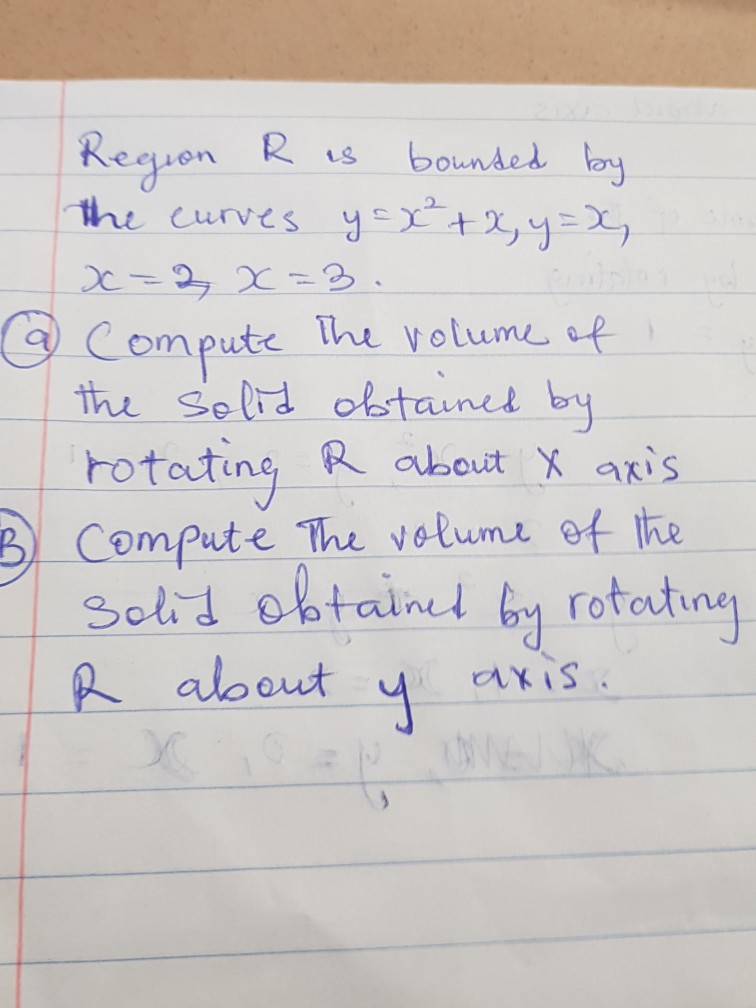 Region R is bounded by
the curves y=x²+x, y=x,
x=2, x=3.
(a) Compute The volume of
the solid obtained by
rotating R about X axis
(B) Compute The volume of the
solid obtained by rotating
R about y axis.